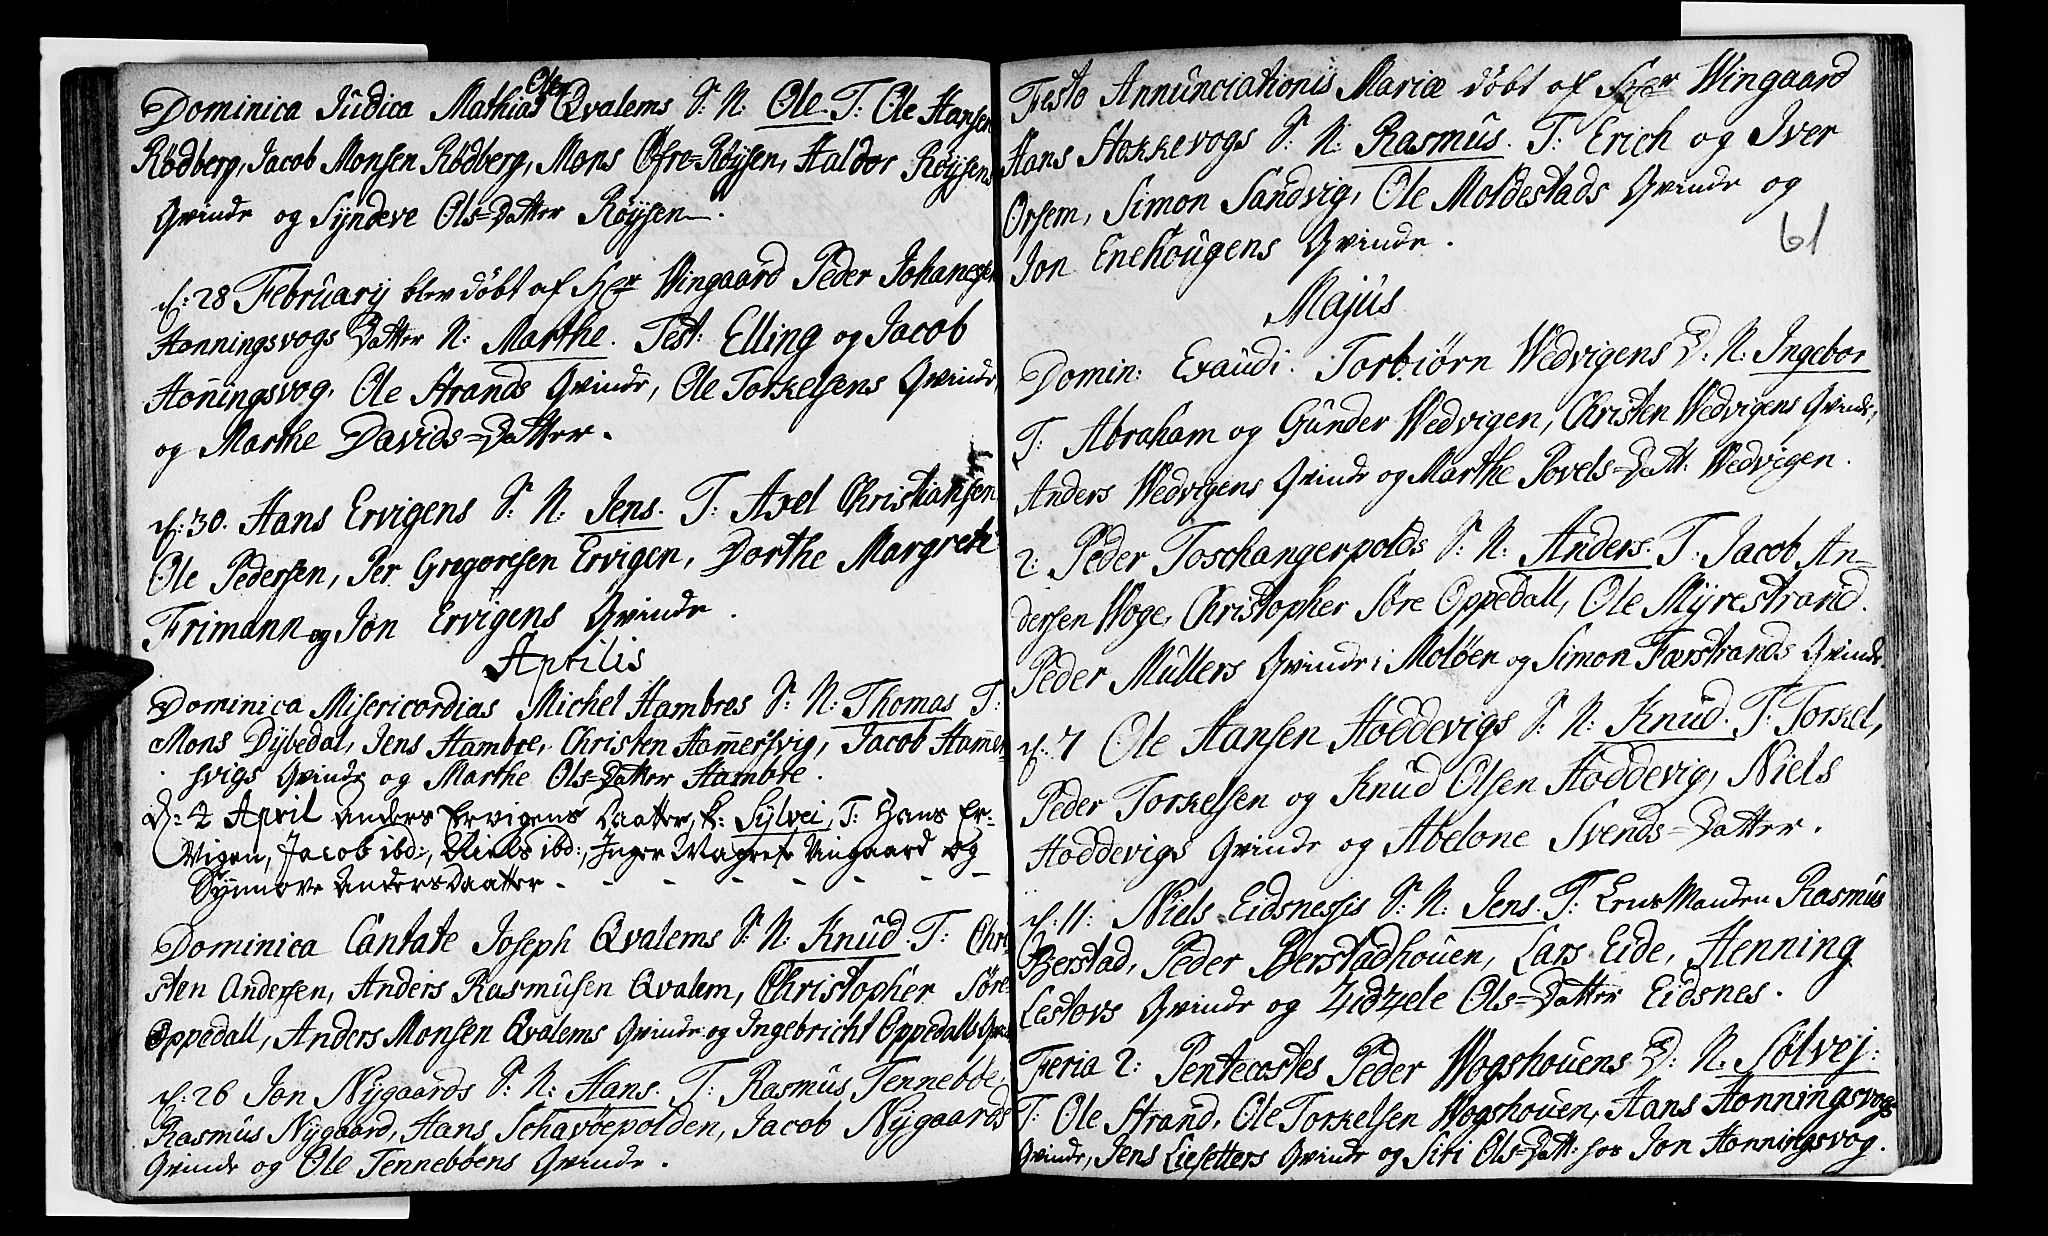 Dominica Judica Mathias Olsen Qvalems S: N: Ole. T: Ole Hansen
Rødberg, Jacob Monsen Rødberg, Mons Øfre=Røÿsen, Haldor Røÿsens
Qvinde og Sÿndeve Ols=Datter Røÿsen.
d: 28 Februarÿ blev døbt af Hr Wingaard Peder Johanesen
Honningsvogs Datter N: Marthe. Test: Elling og Jacob
Hon̄ingsvog, Ole Strands Qvinde, Ole Torkelsens Qvinde,
og Marthe Davids=Datter.
d: 30. Hans Ervigens S: N: Jens. T: Axel Christiansen
Ole Pedersen, Per Gregoresen Ervigen, Dorthe Margrete
Frimann og Jon Ervigens Qvinde.
Aprilis
Dominica Misericordias Michel Hambres S: N: Thomas T:
Mons Dÿbedal, Jens Hambre, Christen Ham̄ersvig, Jacob Ham̄er-
svigs Qvinde og Marthe Ols=Datter Hambre.
D: 4 April Anders Ervigens Daatter, k: Sÿlvei, T: Hans Er-
vigen, Jacob ibd:, Niels ibd:, Inger Magrete Vingaard og
Sÿnnove Andersdaatter
Dominica Cantate Joseph Qvalems S: N: Knud. T: Chri
sten Andersen, Anders Rasmusen Qvalem, Christopher Søre
Oppedall, Anders Monsen Qvalems Qvinde og Ingebricht Oppedalls Qvin
d: 26 Jon Nÿgaards S: N: Hans. T: Rasmus Tenneböe
Rasmus Nÿgaard, Hans Schavøepolden, Jacob Nÿgaards
Qvinde og Ole Tennebøens Qvinde.
Festo Annunciationis Mariæ døbt af Hr Wingaard
Hans Stokkevogs S: N: Rasmus. T: Erich og Iver
Orsem, Simon Sandvig, Ole Moldestads Qvinde og
Jon Enehougens Qvinde.
61
Majus
Domin: Exaudi. Torbiørn Wedvigens D: N: Ingebor
T: Abraham og Gunder Wedvigen, Christen Wedvigens Qvinde,
Anders Wedvigens Qvinde og Marthe Povels=Datt: Wedvigen.
2: Peder Toschangerpolds S: N: Anders. T: Jacob An=
dersen Woge, Christopher Søre Oppedall, Ole Mÿrestrand.
Peder Mullers Qvinde i Moløen og Simon Færstrands Qvinde.
d: 7 Ole Hansen Hoddevigs S: N: Knud. T: Torkel,
Peder Torkelsen og Knud Olsen Hoddevig, Niels
Hoddevigs Qvinde og Abelone Svends=Datter.
d: 11: Niels Eidsnessis S: N: Jens. T: Rasmus
Berstad, Peder Berstadhouen, Lars Eide, Henning
Lestovs Qvinde og Zidzele Ols=Datter Eidsnes.
Feria 2: Pentecostes Peder Wogshouens D: N: Sølvej:
T: Ole Strand, Ole Torkelsen Wogshouen, Hans Honningsvogs
Qvinde, Jens Liesetters Qvinde og Siri Ols=Datt: hos Jon Honningsvog.